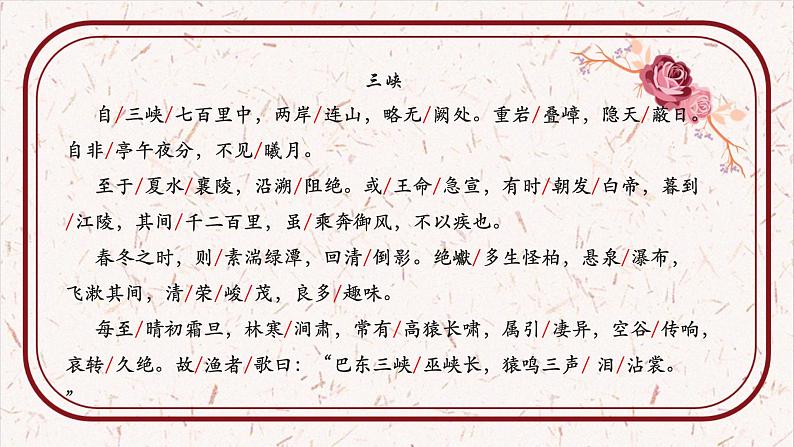 三峡
自/三峡/七百里中，两岸/连山，略无/阙处。重岩/叠嶂，隐天/蔽日。
自非/亭午夜分，不见/曦月。
至于/夏水/襄陵，沿溯/阻绝。或/王命/急宣，有时/朝发/白帝，暮到
/江陵，其间/千二百里，虽/乘奔御风，不以疾也。
春冬之时，则/素湍绿潭，回清/倒影。绝巘/多生怪柏，悬泉/瀑布，
飞漱其间，清/荣/峻/茂，良多/趣味。
每至/晴初霜旦，林寒/涧肃，常有/高猿长啸，属引/凄异，空谷/传响，
哀转/久绝。故/渔者/歌曰：“巴东三峡/巫峡长，猿鸣三声/ 泪/沾裳。
”